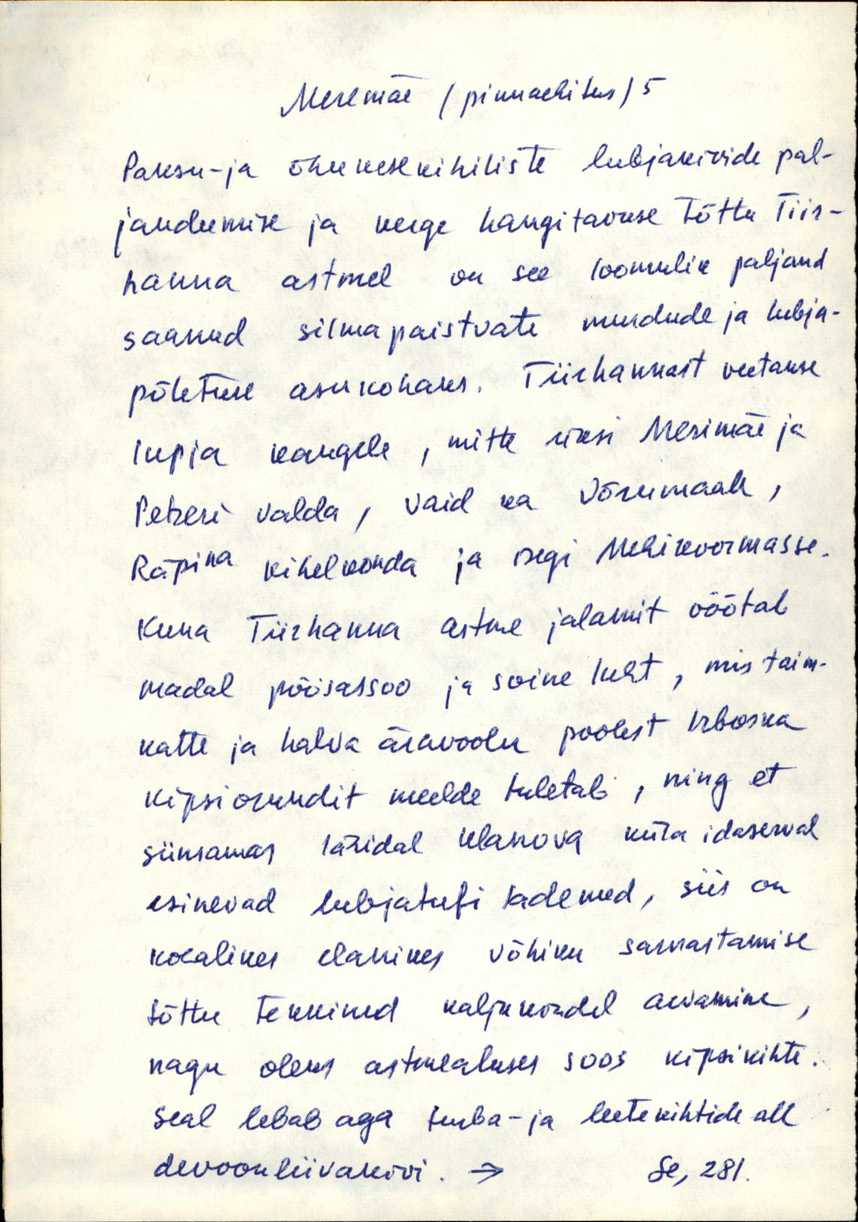 Meremäe (pinnaehitus) 5
Paksu-ja õhukesekihiliste lubjakivide pal-
jandumise ja kerge hangitavuse tõttu Tiir-
hanna astmel on see loomulik paljand
saanud silmapaistvate murdude ja lubja-
põletuse asukohaks. Tiirhannast veetakse
lupja kaugele, mitte üksi Merimäe ja
Petseri valda, vaid ka Võrumaale,
Räpina kihelkonda ja isegi Mehikoormasse.
Kuna Tiirhanna astme jalamit vöötab
madal põõsassoo ja soine luht, mis taim-
katte ja halva äravoolu poolest Irboska
kipsiorundit meelde tuletab, ning et
siinsamas lähidal Ulanova küla idaserval
esinevad lubjatufi lademed, siis on
kohalikes elanikes võhiku sarnastamise
tõttu tekkinud naljakondel arvamine,
nagu oleks astmealuses soos kipsikihte.
Seal lebab aga turba-ja leetekihtide all
devoonliivakivi. → Se, 281.